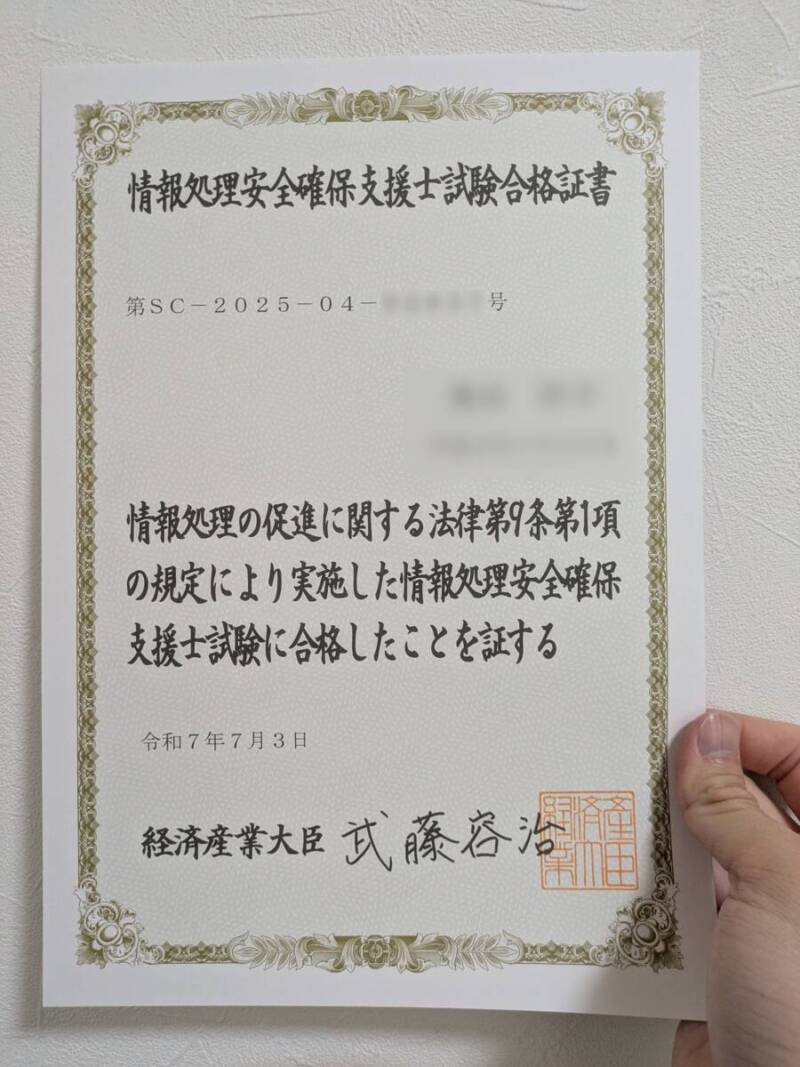 情報処理安全確保支援士試験合格証書
第ＳＣ－２０２５－０４－号
情報処理の促進に関する法律第9条第1項
の規定により実施した情報処理安全確保
支援士試験に合格したことを証する
令和７年７月３日
経済産業大臣 武藤容治
経済産業大臣